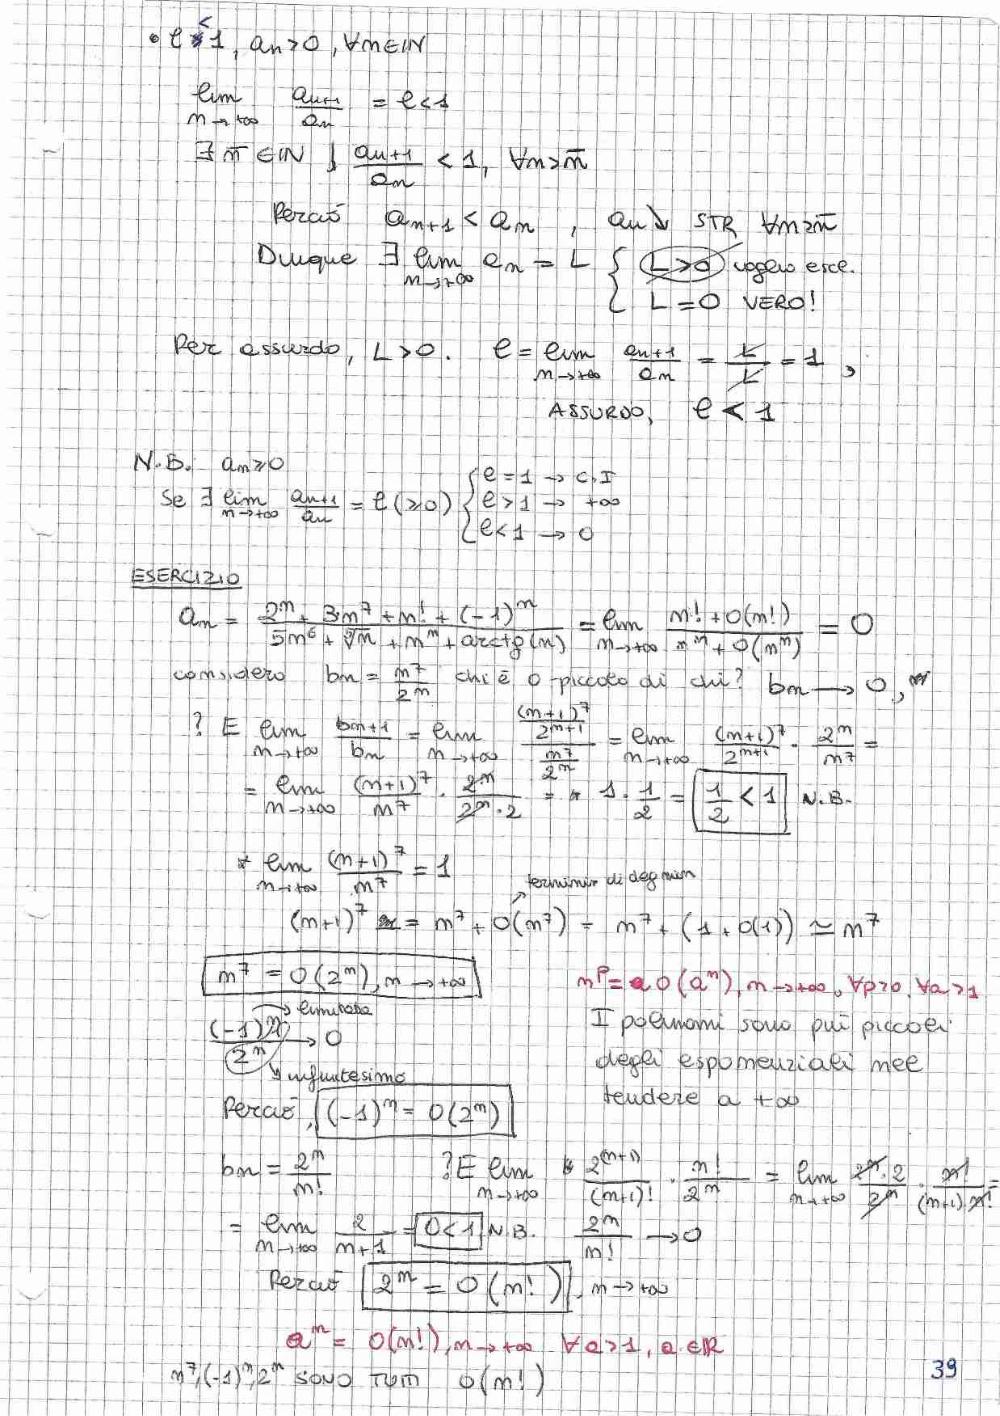 • ℓ < 1, an > 0, ∀n∈ℕ
lim n→+∞ an+1/an = ℓ < 1
∃ n̄ ∈ ℕ | an+1/an < 1, ∀n > n̄
Perciò an+1 < an, an ↘ STR ∀n ≥ n̄
Dunque ∃ lim n→+∞ an = L { L > 0 voglio escl.
L = 0 VERO!
Per assurdo, L > 0. ℓ = lim n→+∞ an+1/an = L/L = 1,
ASSURDO, ℓ < 1
N.B. an ≥ 0
Se ∃ lim n→+∞ an+1/an = ℓ (≥0) { ℓ = 1 → C.I
ℓ > 1 → +∞
ℓ < 1 → 0
ESERCIZIO
an = (2^n + 3n^7 + n! + (-1)^n)/(5n^6 + √n + n^n + arctg(n)) = lim n→+∞ (n! + o(n!))/(n^n + o(n^n)) = 0
considero bn = n^7/2^n chi è o-piccolo di chi? bn → 0,
? ∃ lim n→+∞ bn+1/bn = lim n→+∞ ((n+1)^7/2^(n+1))/(n^7/2^n) = lim n→+∞ (n+1)^7/2^(n+1) · 2^n/n^7 =
= lim n→+∞ (n+1)^7/n^7 · 2^n/(2^n·2) = * 1 · 1/2 = 1/2 < 1 N.B.
* lim n→+∞ (n+1)^7/n^7 = 1
termini di deg min
(n+1)^7 = n^7 + o(n^7) = n^7 + (1 + o(1)) ≃ n^7
n^7 = o(2^n), n → +∞
n^p = o(a^n), n → +∞, ∀p>0, ∀a>1
→ limitata
(-1)^n/2^n → 0
I polinomi sono più piccoli
degli esponenziali nel
tendere a +∞
↘ infinitesimo
Perciò, (-1)^n = o(2^n)
bn = 2^n/n! ?∃ lim n→+∞ 2^(n+1)/(n+1)! · n!/2^n = lim n→+∞ 2^n·2/2^n · n!/((n+1)·n!) =
= lim n→+∞ 2/(n+1) = 0 < 1 N.B. 2^n/n! → 0
Perciò 2^n = o(n!), n → +∞
a^n = o(n!), n → +∞ ∀a>1, a∈ℝ
n^7, (-1)^n, 2^n SONO TUTTI o(n!)
39